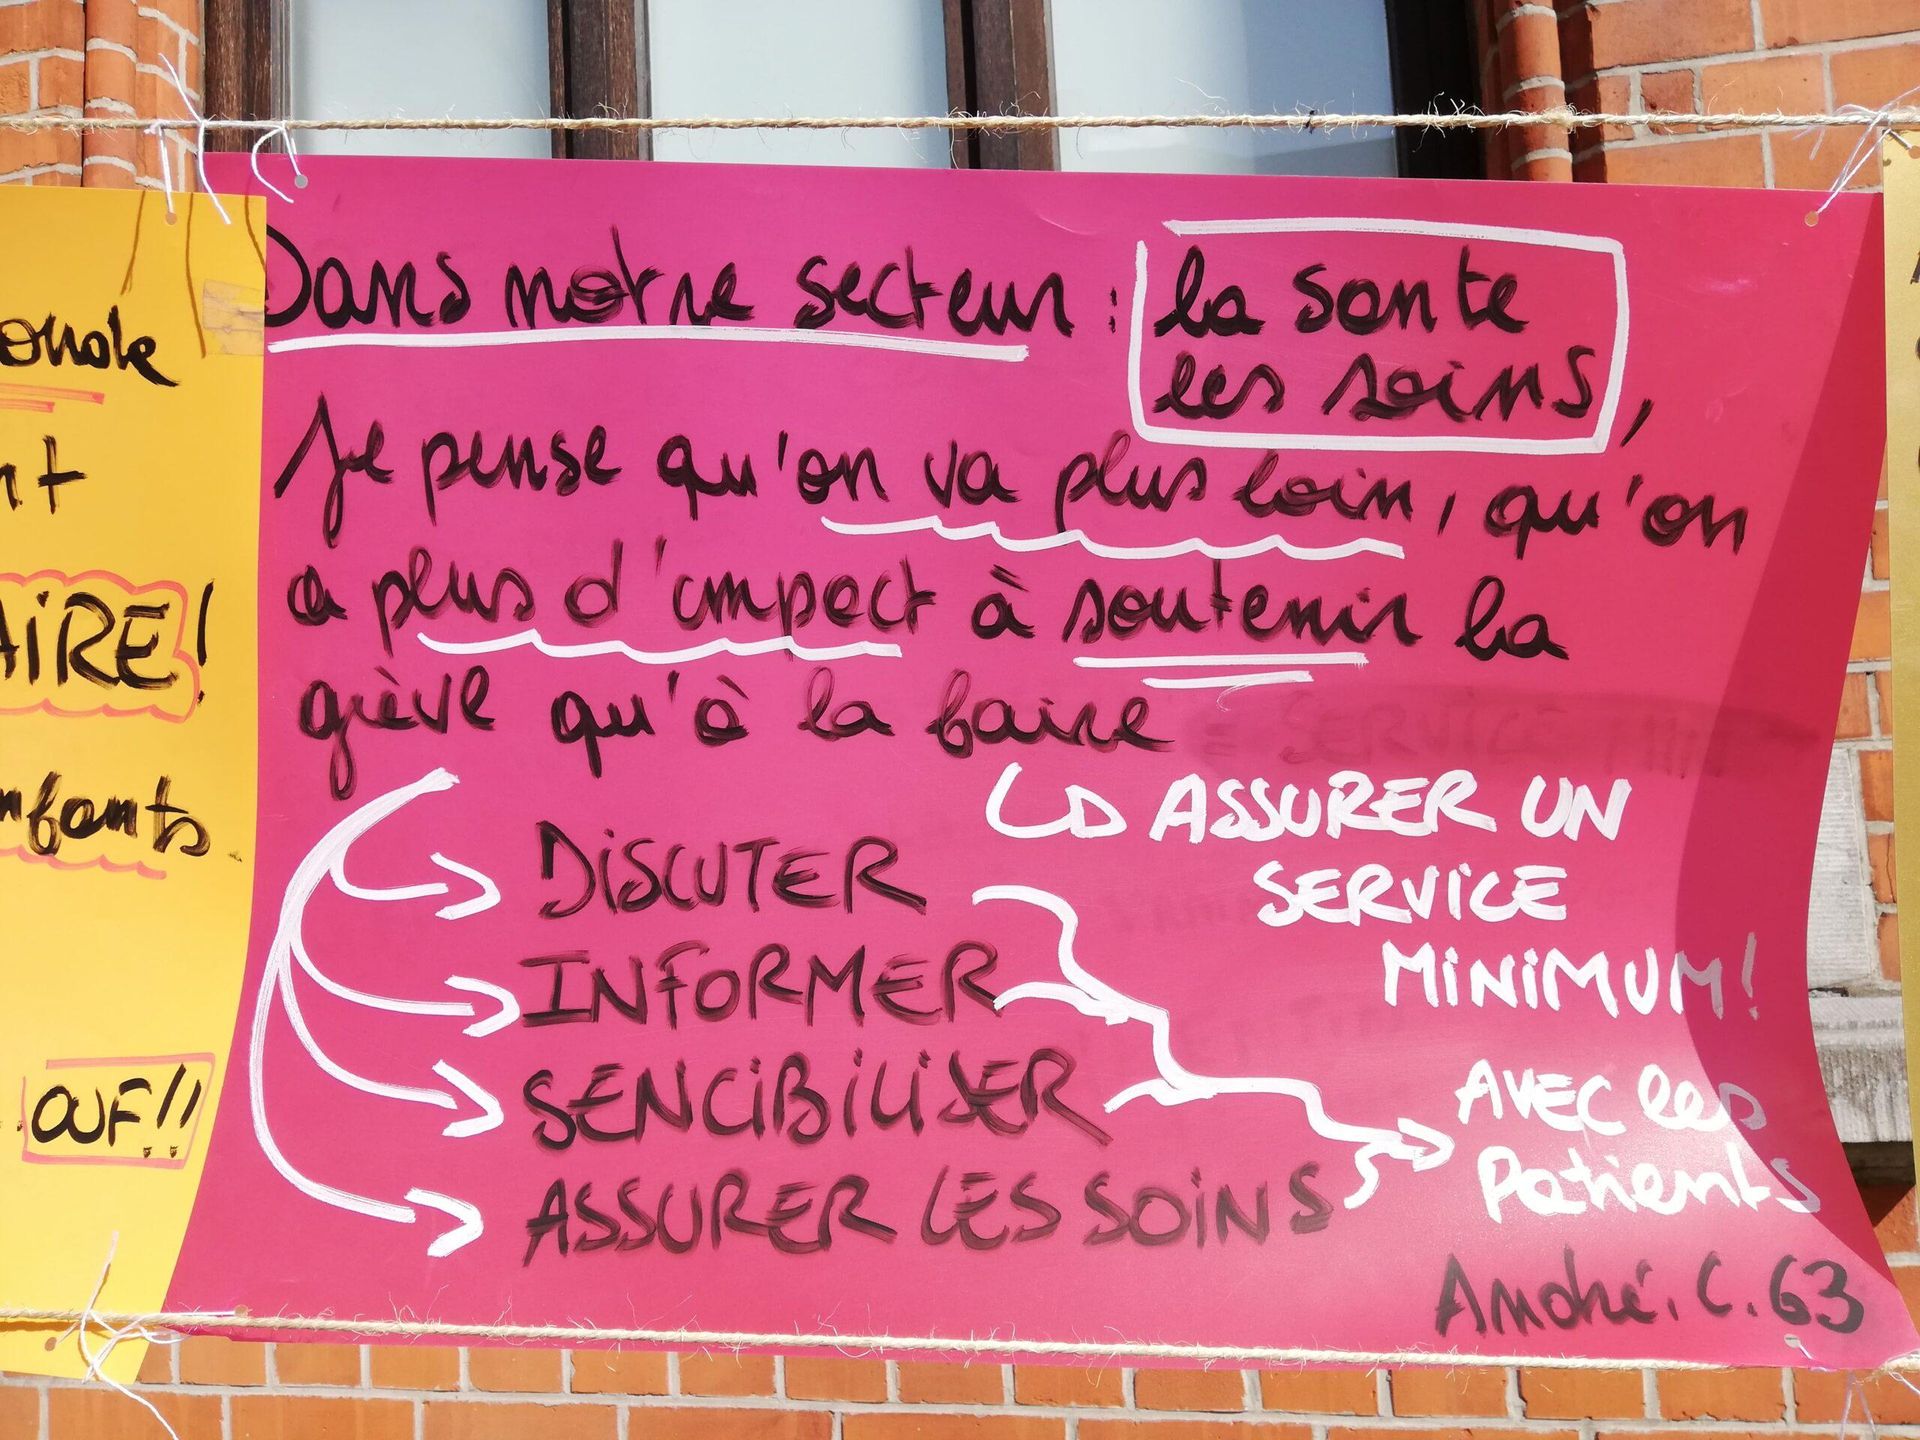 Dans notre secteur : la santé
les soins,
Je pense qu'on va plus loin, qu'on
a plus d'impact à soutenir la
grève qu'à la faire
↳ ASSURER UN
SERVICE
MINIMUM!
→ DISCUTER
→ INFORMER
→ SENCIBILISER
→ ASSURER LES SOINS
→ AVEC les
Patients
André. C. 63
nt
AIRE!
nfants
OUF!!